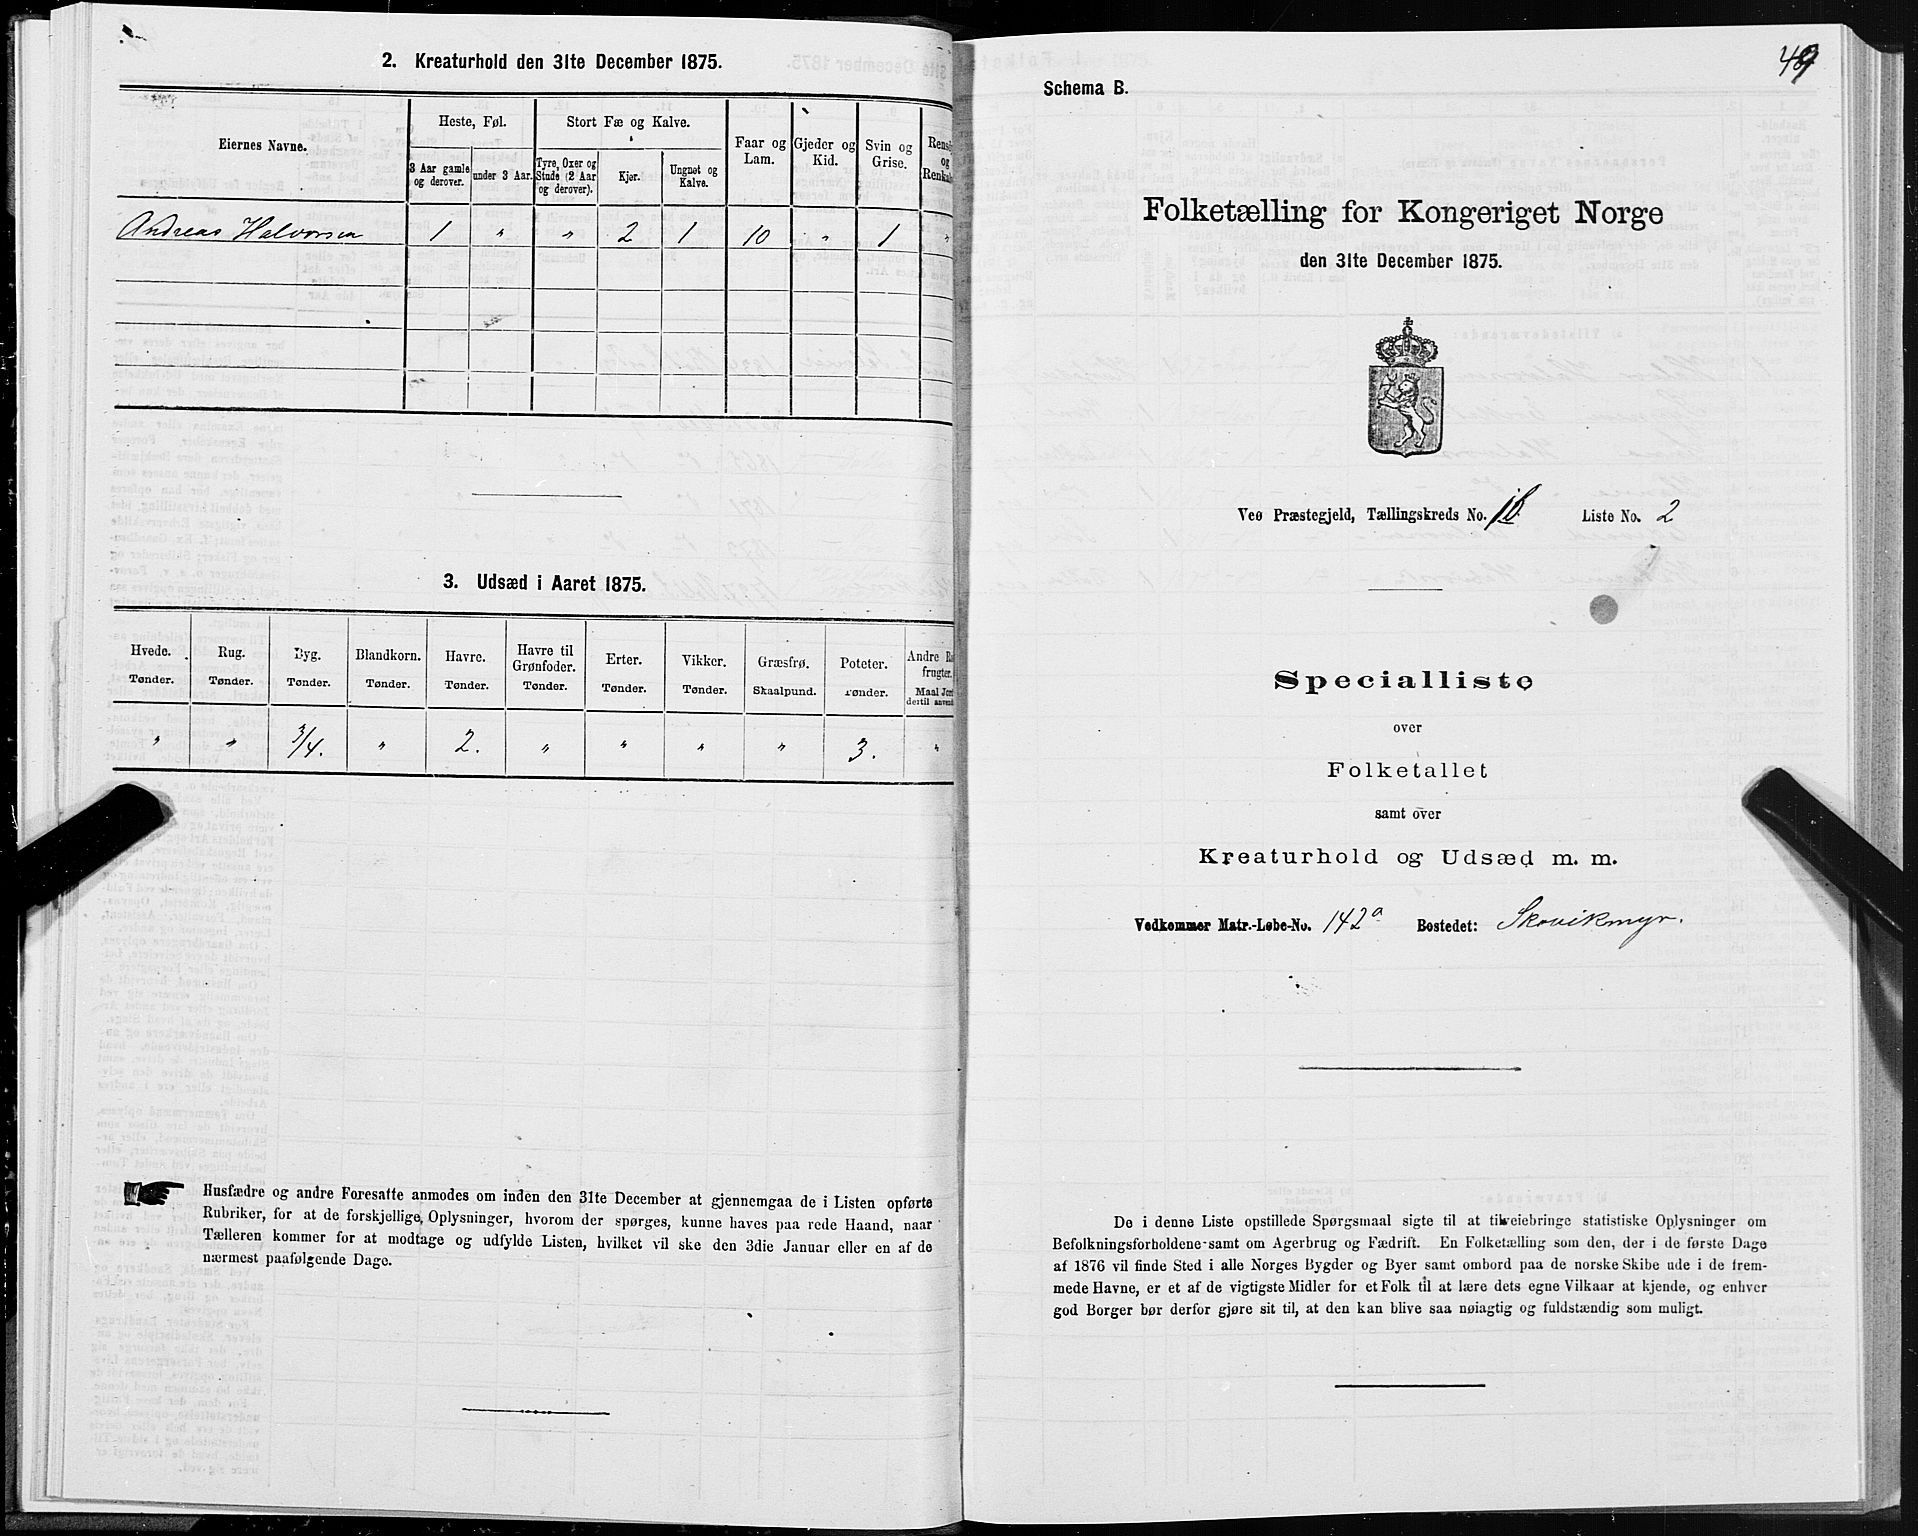 2. Kreaturhold den 31te December 1875.
Eiernes Navne.
Heste, Føl.
Stort Fæ og Kalve.
Faar og Lam.
Gjeder og Kid.
Svin og Grise.
og
3 Aar gamle og derover.
under 3 Aar.
Tyre, Oxer og Stude (2 Aar og derover).
Kjør.
Ungnøt og Kalve.
Andreas Halvorsen 1 " " 2 1 10 " 1 "
3. Udsæd i Aaret 1875.
Hvede. Rug. Byg. Blandkorn. Havre. Havre til Grønfoder. Erter. Vikker. Græsfrø. Poteter. Andre
Tønder. Tønder. Tønder. Tønder. Tønder. Tønder. Tønder. Tønder. Skaalpund. Tønder.
" " 3/4. " 2. " " " " 3. "
Husfædre og andre Foresatte anmodes om inden den 31te December at gjennemgaa de i Listen opførte
Rubriker, for at de forskjellige Oplysninger, hvorom der spørges, kunne haves paa rede Haand, naar
Tælleren kommer for at modtage og udfylde Listen, hvilket vil ske den 3die Januar eller en af de
nærmest paafølgende Dage.
49
Schema B.
Folketælling for Kongeriget Norge
den 31te December 1875.
Veø Præstegjeld, Tællingskreds No. Liste No. 2
Specialliste
over
Folketallet
samt over
Kreaturhold og Udsæd m. m.
Vedkommer Matr.-Løbe-No. 142a Bostedet: Skovikmyr.
De i denne Liste opstillede Spørgsmaal sigte til at tilveiebringe statistiske Oplysninger om
Befolkningsforholdene samt om Agerbrug og Fædrift. En Folketælling som den, der i de første Dage
af 1876 vil finde Sted i alle Norges Bygder og Byer samt ombord paa de norske Skibe ude i de frem-
mede Havne, er et af de vigtigste Midler for et Folk til at lære dets egne Vilkaar at kjende, og enhver
god Borger bør derfor gjøre sit til, at den kan blive saa nøiagtig og fuldstændig som muligt.